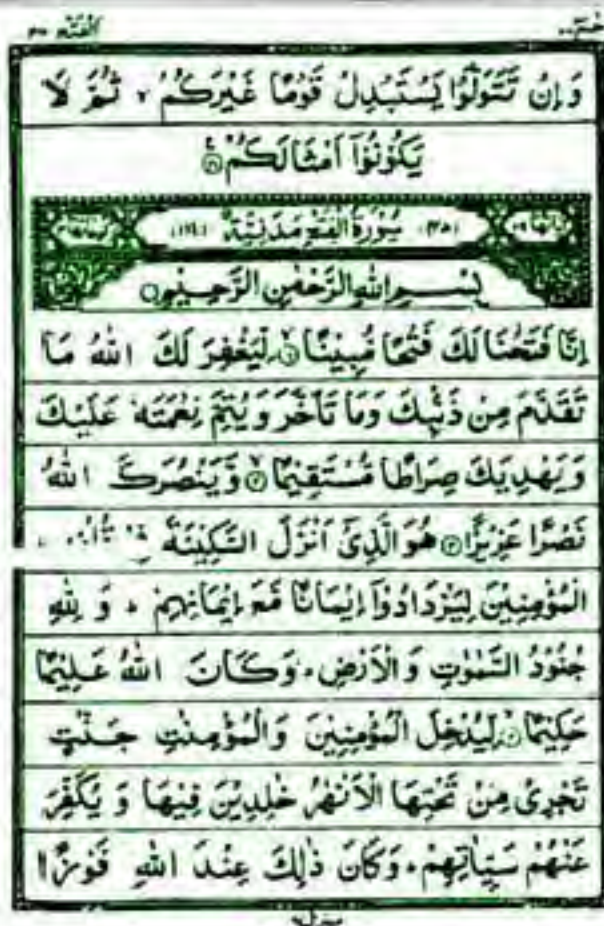 الفتح ٤٨
حٰمٓ
وَاِنْ تَتَوَلَّوْا يَسْتَبْدِلْ قَوْمًا غَيْرَكُمْ ۙ ثُمَّ لَا
يَكُوْنُوْٓا اَمْثَالَكُمْ
سُوْرَةُ الْفَتْحِ مَدَنِيَّةٌ
بِسْمِ اللّٰهِ الرَّحْمٰنِ الرَّحِيْمِ
اِنَّا فَتَحْنَا لَكَ فَتْحًا مُّبِيْنًا ۙ لِّيَغْفِرَ لَكَ اللّٰهُ مَا
تَقَدَّمَ مِنْ ذَنْۢبِكَ وَمَا تَاَخَّرَ وَ يُتِمَّ نِعْمَتَهٗ عَلَيْكَ
وَيَهْدِيَكَ صِرَاطًا مُّسْتَقِيْمًا ۙ وَّيَنْصُرَكَ اللّٰهُ
نَصْرًا عَزِيْزًا هُوَ الَّذِيْٓ اَنْزَلَ السَّكِيْنَةَ فِيْ
الْمُؤْمِنِيْنَ لِيَزْدَادُوْٓا اِيْمَانًا مَّعَ اِيْمَانِهِمْ ۚ وَ لِلّٰهِ
جُنُوْدُ السَّمٰوٰتِ وَ الْاَرْضِ ۚ وَكَانَ اللّٰهُ عَلِيْمًا
حَكِيْمًا ۙ لِّيُدْخِلَ الْمُؤْمِنِيْنَ وَالْمُؤْمِنٰتِ جَنّٰتٍ
تَجْرِيْ مِنْ تَحْتِهَا الْاَنْهٰرُ خٰلِدِيْنَ فِيْهَا وَ يُكَفِّرَ
عَنْهُمْ سَيِّاٰتِهِمْ ۚ وَكَانَ ذٰلِكَ عِنْدَ اللّٰهِ فَوْزًا